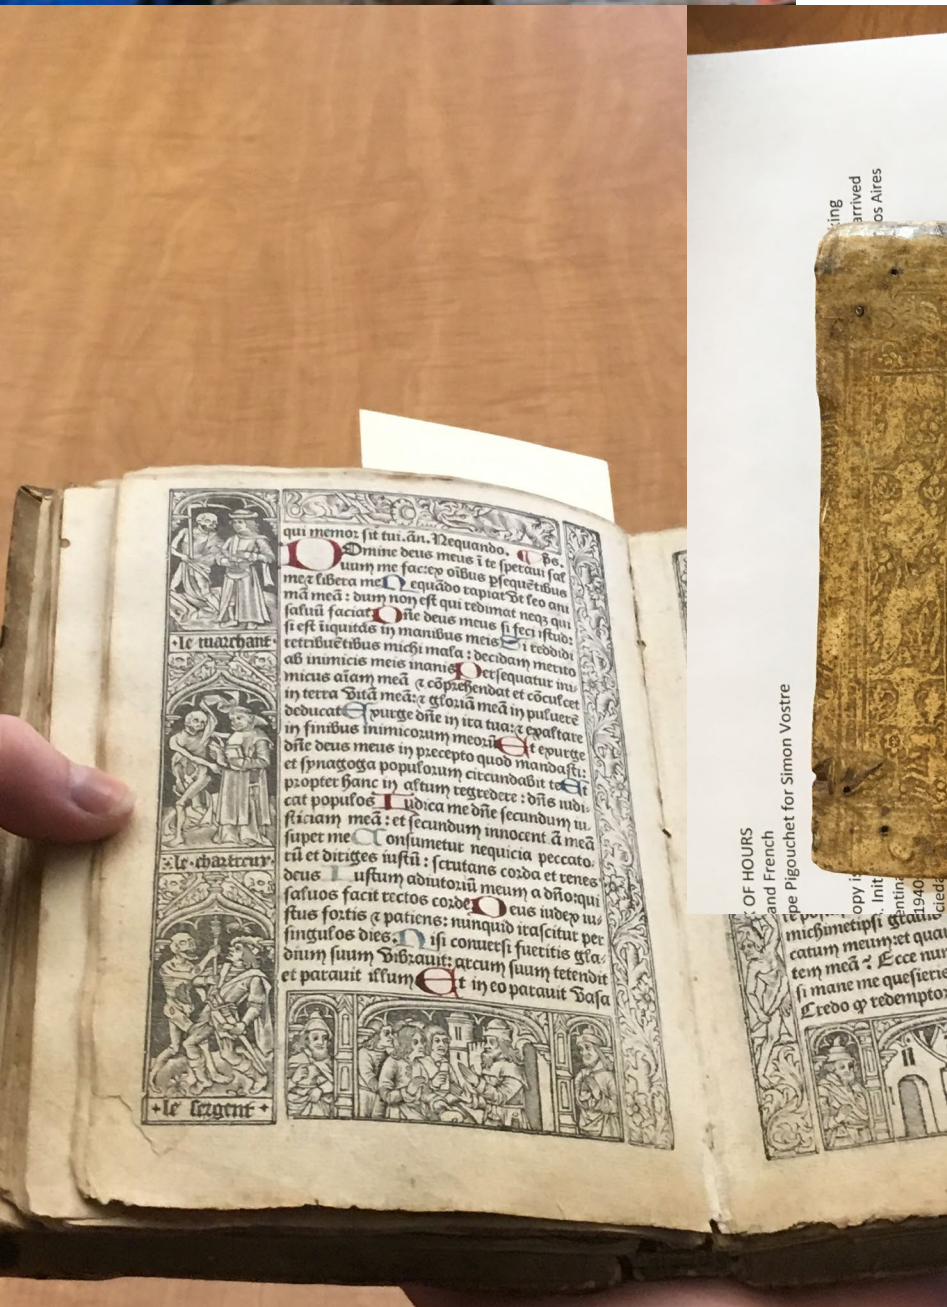 qui memor sit tui. an̄. Nequando. ps.
Domine deus meus ī te speraui sal
uum me fac: ex oībus ꝑsequētibus
me ⁊ libera me Nequādo rapiat vt leo ani
mā meā: dum non est qui redimat neqꝫ qui
saluū faciat Dn̄e deus meus si feci istud:
si est īiquitas in manibus meis Si reddidi
retribuētibus michi mala: decidam merito
ab inimicis meis inanis Persequatur ini-
micus aīam meā ⁊ cōprehendat et cōculcet
in terra vitā meā: ⁊ gloriā meā in puluerē
deducat Exurge dn̄e in ira tua: ⁊ exaltare
in finibus inimicorum meorū Et exurge
dn̄e deus meus in precepto quod mandasti:
et synagoga populorum circundabit te Et
propter hanc in altum regredere: dn̄s iudi-
cat populos Iudica me dn̄e secundum iu-
sticiam meā: et secundum innocent ā meā
super me Consumetur nequicia peccato-
rū et diriges iustū: scrutans corda et renes
deus Iustum adiutoriū meum a dn̄o: qui
saluos facit rectos corde Deus iudex iu-
stus fortis ⁊ patiens: nunquid irascitur per
singulos dies. Nisi conuersi fueritis gla-
dium suum vibrauit: arcum suum tetendit
et parauit illum Et in eo parauit vasa
le marchant
le chartreux
le sergent
arrived
os Aires
OF HOURS
and French
Pigouchet for Simon Vostre
opy
Init
1940
michimetipsi
catum meum: et
tem meā Ecce nun
si mane me quesieris
Credo ꝙ redemptor